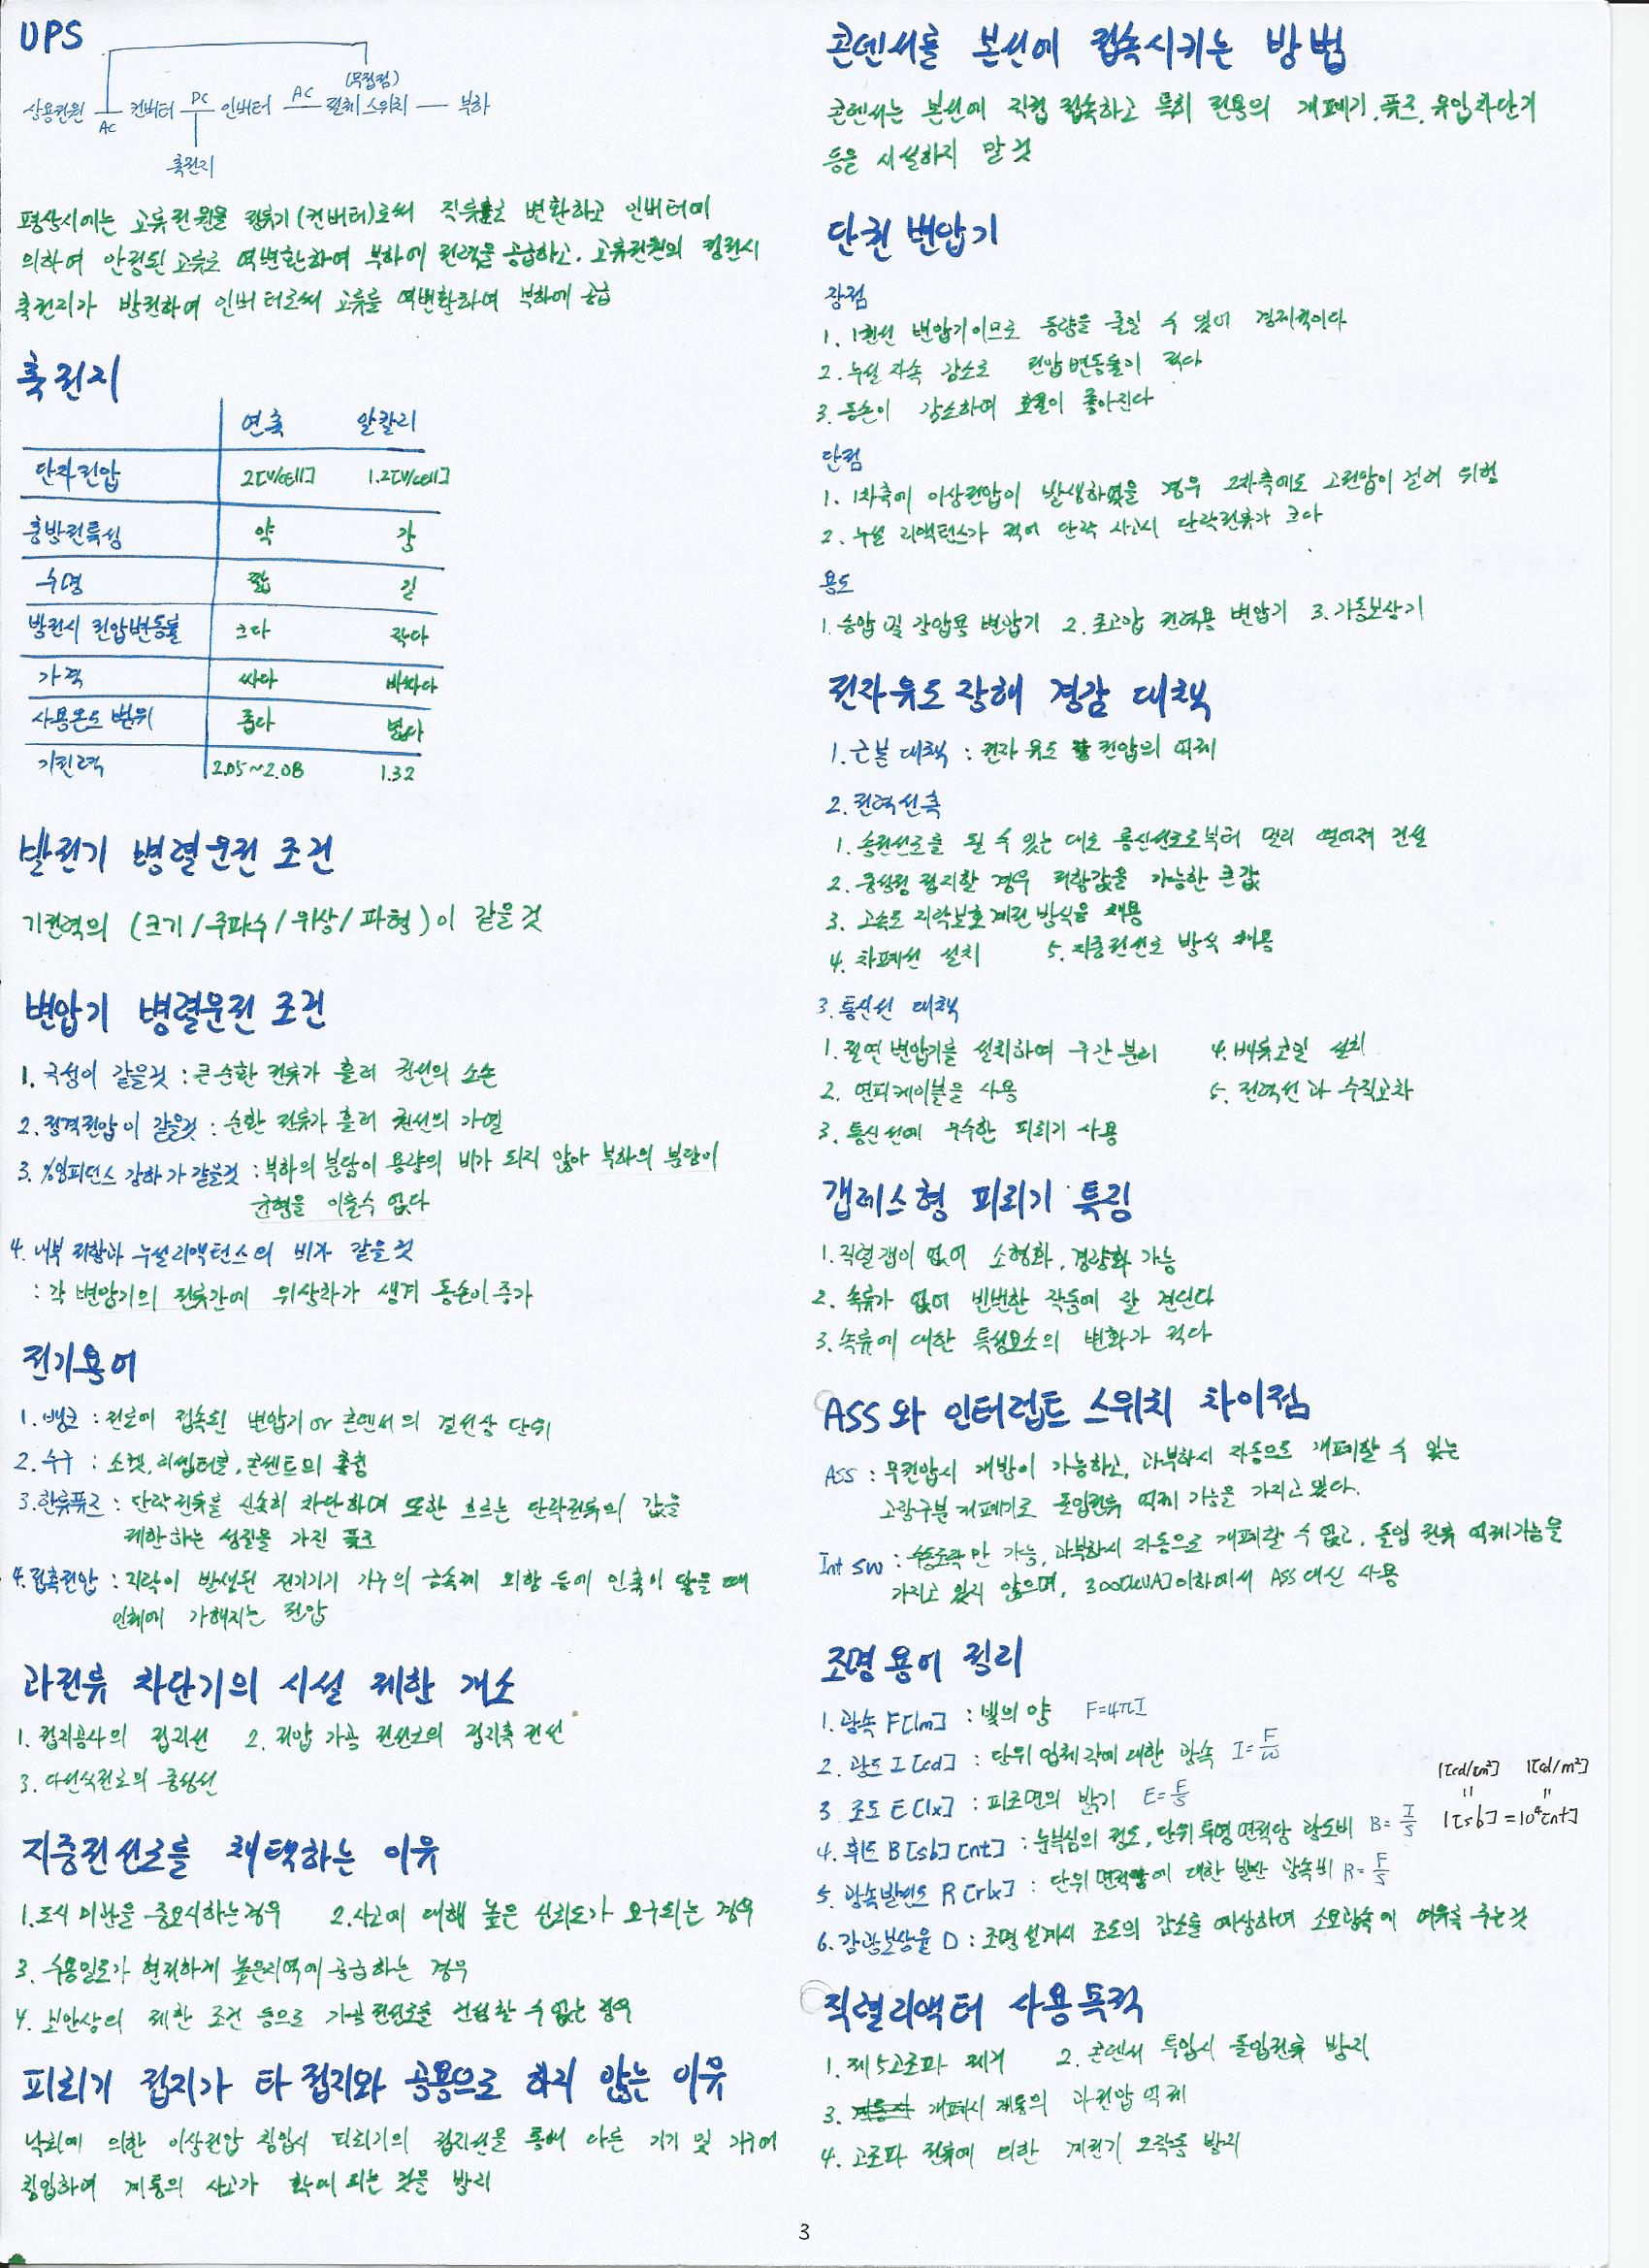 UPS
(무접점)
상용전원 AC 컨버터 DC 인버터 AC 절체 스위치 부하
축전지
평상시에는 교류전원을 정류기(컨버터)로써 직류로 변환하고 인버터에
의하여 안정된 교류로 역변환하여 부하에 전력을 공급하고. 교류전원의 정전시
축전지가 방전하여 인버터로써 교류를 역변환하여 부하에 공급
축전지
연축 알칼리
단자전압 2[V/cell] 1.2[V/cell]
충방전특성 약 강
수명 짧 길
방전시 전압변동률 크다 작다
가격 싸다 비싸다
사용온도 범위 좁다 넓다
기전력 2.05~2.08 1.32
발전기 병렬운전 조건
기전력의 (크기/주파수/위상/파형)이 같을 것
변압기 병렬운전 조건
1. 극성이 같을것 : 큰 순환 전류가 흘러 권선의 소손
2. 정격전압이 같을것 : 순환 전류가 흘러 권선의 가열
3. %임피던스 강하가 같을것 : 부하의 분담이 용량의 비가 되지 않아 부하의 분담이
균형을 이룰수 없다
4. 내부 저항과 누설리액턴스의 비가 같을 것
: 각 변압기의 전류간에 위상차가 생겨 동손이 증가
전기용어
1. 뱅크 : 전로에 접속된 변압기 or 콘덴서의 결선상 단위
2. 수구 : 소켓, 리셉터클, 콘센트의 총칭
3. 한류퓨즈 : 단락전류를 신속히 차단하며 또한 흐르는 단락전류의 값을
제한하는 성질을 가진 퓨즈
4. 접촉전압 : 지락이 발생된 전기기기 기구의 금속제 외함 등에 인축이 닿을 때
인체에 가해지는 전압
과전류 차단기의 시설 제한 개소
1. 접지공사의 접지선 2. 저압 가공 전선로의 접지측 전선
3. 다선식전로의 중성선
지중전선로를 채택하는 이유
1. 도시 미관을 중요시하는경우 2. 사고에 대해 높은 신뢰도가 요구되는 경우
3. 수용밀도가 현저하게 높은지역에 공급하는 경우
4. 보안상의 제한 조건 등으로 가공 전선로를 건설할 수 없는 경우
피뢰기 접지가 타 접지와 공용으로 하지 않는 이유
낙뢰에 의한 이상전압 침입시 피뢰기의 접지선을 통해 다른 기기 및 기구에
침입하여 계통의 사고가 확대 되는 것을 방지
콘덴서를 본선에 접속시키는 방법
콘덴서는 본선에 직접 접속하고 특히 전용의 개폐기, 퓨즈, 유입차단기
등을 시설하지 말 것
단권 변압기
장점
1. 1권선 변압기이므로 동량을 줄일 수 있어 경제적이다
2. 누설 자속 감소로 전압변동률이 작다
3. 동손이 감소하여 효율이 좋아진다
단점
1. 1차측에 이상전압이 발생하였을 경우 2차측에도 고전압이 걸려 위험
2. 누설 리액턴스가 적어 단락 사고시 단락전류가 크다
용도
1. 승압 및 강압용 변압기 2. 초고압 전력용 변압기 3. 기동보상기
전자유도 장해 경감 대책
1. 근본 대책 : 전자 유도 전압의 억제
2. 전력선측
1. 송전선로를 될 수 있는 대로 통신선로로부터 멀리 떨어져 건설
2. 중성점 접지할 경우 저항값을 가능한 큰 값
3. 고속도 지락보호 계전 방식을 채용
4. 차폐선 설치 5. 지중전선로 방식 채용
3. 통신선 대책
1. 절연 변압기를 설치하여 구간 분리 4. 배류코일 설치
2. 연피케이블을 사용 5. 전력선과 수직교차
3. 통신선에 우수한 피뢰기 사용
갭레스형 피뢰기 특징
1. 직렬갭이 없어 소형화, 경량화 가능
2. 속류가 없어 빈번한 작동에 잘 견딘다
3. 속류에 대한 특성요소의 변화가 적다
ASS와 인터럽트 스위치 차이점
ASS : 무전압시 개방이 가능하고, 과부하시 자동으로 개폐할 수 있는
고장구분 개폐기로 돌입전류 억제 기능을 가지고 있다.
Int SW : 수동조작만 가능, 과부하시 자동으로 개폐할 수 없고, 돌입 전류 억제기능을
가지고 있지 않으며, 300[kVA]이하에서 ASS 대신 사용
조명 용어 정리
1. 광속 F[lm] : 빛의 양 F=4πI
2. 광도 I [cd] : 단위 입체각에 대한 광속 I=F/ω
3 조도 E[lx] : 피조면의 밝기 E=F/S
1[cd/cm²] 1[cd/m²]
4. 휘도 B[sb] [nt] : 눈부심의 정도, 단위 투영 면적당 광도비 B=I/S 1[sb] = 10⁴[nt]
5. 광속발산도 R[rlx] : 단위 면적에 대한 발산 광속비 R=F/S
6. 감광보상율 D : 조명 설계시 조도의 감소를 예상하여 소요광속에 여유를 주는것
직렬리액터 사용목적
1. 제5고조파 제거 2. 콘덴서 투입시 돌입전류 방지
3. 개폐시 계통의 과전압 억제
4. 고조파 전류에 의한 계전기 오작동 방지
3